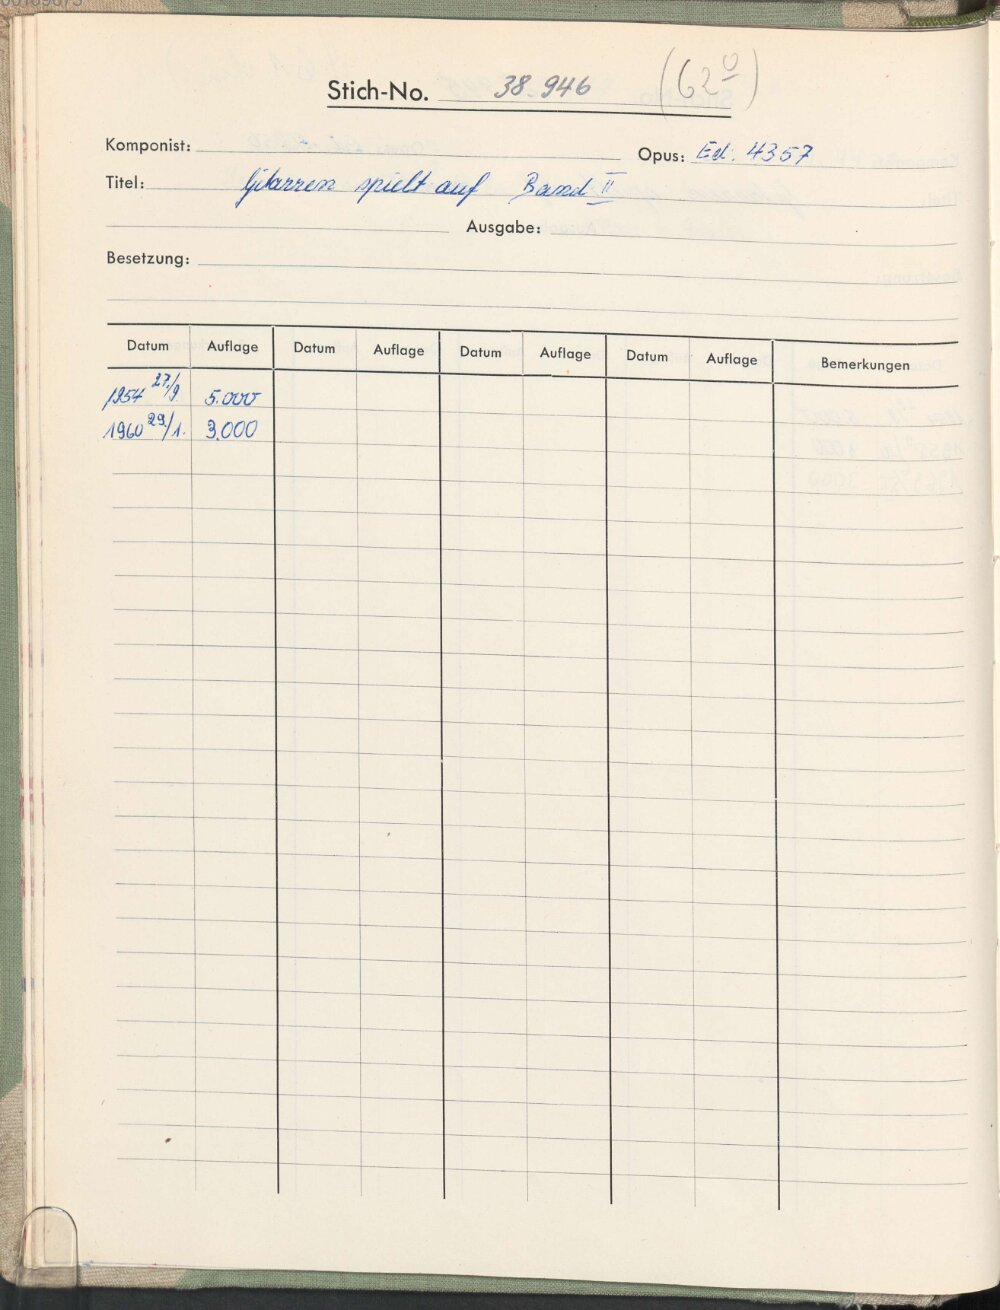 Stich-No. 38.946 (62º)
Komponist: Opus: Ed. 4357
Titel: Gitarren spielt auf Band II
Ausgabe:
Besetzung:
Datum Auflage Datum Auflage Datum Auflage Datum Auflage Bemerkungen
1954 27/9. 5.000
1960 29/1. 3.000